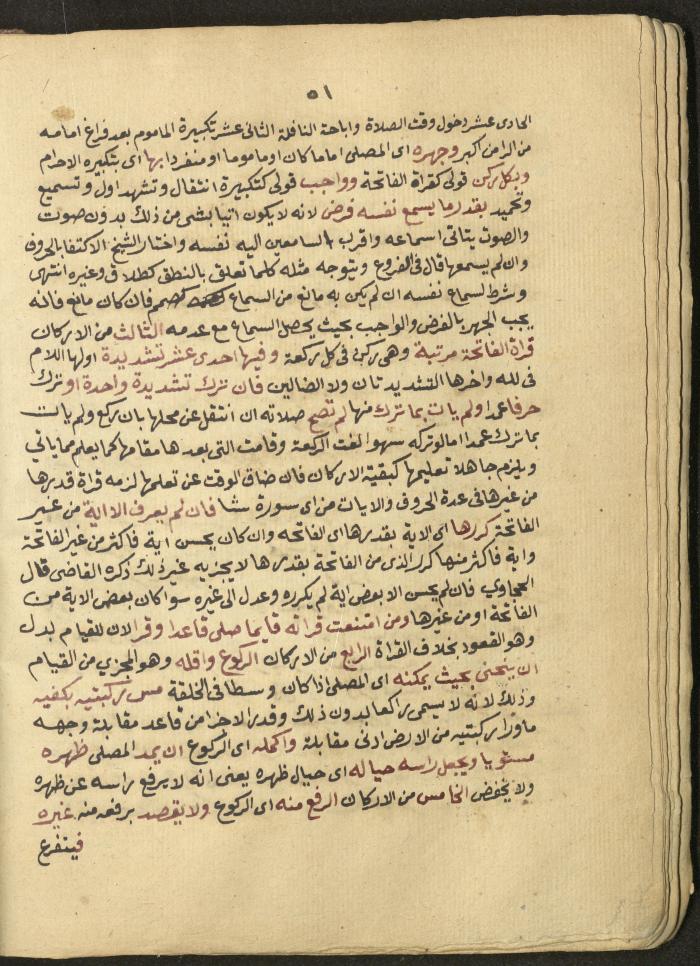 ٥١
الحادى عشر دخول وقت الصلاة واباحة النافلة الثانى عشر تكبيرة الماموم بعد فراغ امامه
من الرا من اكبر وجهره اى المصلى اماما كان او ماموما او منفردا بها اى بتكبيره الاحرام
وبكل ركن قولى كقراة الفاتحة وواجب قولى كتكبيرة انتقال وتشهد اول وتسميع
وتحميد بقدر ما يسمع نفسه فرض لانه لا يكون اتيا بشى من ذلك بدون صوت
والصوت يتاتى اسماعه واقرب السامعين اليه نفسه واختار الشيخ الاكتفا بالحروف
وان لم يسمعها قال فى الفروع ويتوجه مثله كلما تعلق بالنطق كطلاق وغيره انتهى
وشرط لسماع نفسه ان لم يكن به مانع من السماع كصمم فان كان مانع فانه
يجب الجهر بالفرض والواجب بحيث يحصل السماع مع عدمه الثالث من الاركان
قراة الفاتحة مرتبة وهى ركن فى كل ركعة وفيها احدى عشر تشديدة اولها اللام
فى لله واخرها التشديدتان ولا الضالين فان ترك تشديدة واحدة او ترك
حرفا عمدا ولم يات بما ترك منها لم تصح صلاته ان انتقل عن محلها بان ركع ولم يات
بما ترك عمدا اما لو تركه سهوا لغت الركعة وقامت التى بعدها مقامها كما يعلم مما ياتي
ويلزم جاهلا تعليمها كبقية الاركان فان ضاق الوقت عن تعلمها لزمه قراة قدرها
من غيرها فى عدة الحروف والايات من اى سورة شا فان لم يعرف الا اية من غير
الفاتحة كررها اى الاية بقدرها اى الفاتحه وان كان يحسن اية فاكثر من غير الفاتحة
واية فاكثر منها كرر الذى من الفاتحة بقدرها لا يجزيه غير ذلك ذكره القاضى قال
الحجاوي فان لم يحسن الا بعض اية لم يكرره وعدل الى غيره سوا كان بعض الاية من
الفاتحة او من غيرها ومن امتنعت قراته قايما صلى قاعدا وقرا لان للقيام بدل
وهو القعود بخلاف القراة الرابع من الاركان الركوع واقله وهو المجزي من القيام
ان ينحنى بحيث يمكنه اى المصلى اذا كان وسطا فى الخلقة مس ركبتيه بكفيه
وذلك لانه لا يسمى راكعا بدون ذلك وقدر الاجزا من قاعد مقابلة وجهه
ماورا ركبتيه من الارض ادنى مقابلة واكمله اى الركوع ان يمد المصلى ظهره
مستويا ويجعل راسه حياله اى حيال ظهره يعنى انه لا يرفع راسه عن ظهره
ولا يخفض الخامس من الاركان الرفع منه اى الركوع ولا يقصد برفعه منه غيره
فيتفرع